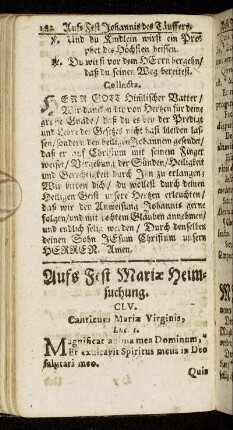 182 Auffs Fest Johannis des Täuffers.
V. Und du Kindlein wirst ein Pro-
phet des Höchsten heissen.
R. Du wirst vor dem HErrn hergehn/
daß du seinen Weg bereitest.
Collecta.
HERR GOTT Himlischer Vatter/
Wir dancken dir von Hertzen für deine
grosse Gnade/ daß du es bey der Predigt
und Lehre des Gesetzes nicht hast bleiben las-
sen/ sondern den heiligen Johannem gesendet/
daß er auf Christum mit seinem Finger
weise/ Vergebung der Sünden/ Heiligkeit
und Gerechtigkeit durch Jhn zu erlangen/
Wir bitten dich/ du wollest durch deinen
Heiligen Geist unsere Hertzen erleuchten/
daß wir der Anweisung Johannis gerne
folgen/ und mit rechtem Glauben annehmen/
und endlich selig werden/ Durch denselben
deinen Sohn JEsum Christum unsern
HERREN. Amen.
Auffs Fest Mariæ Heim-
suchung.
CLV.
Canticum Mariæ Virginis,
Luc. 1.
Magnificat anima mea Dominum,
Et exultavit Spiritus meus in Deo
salutari meo.
Quia